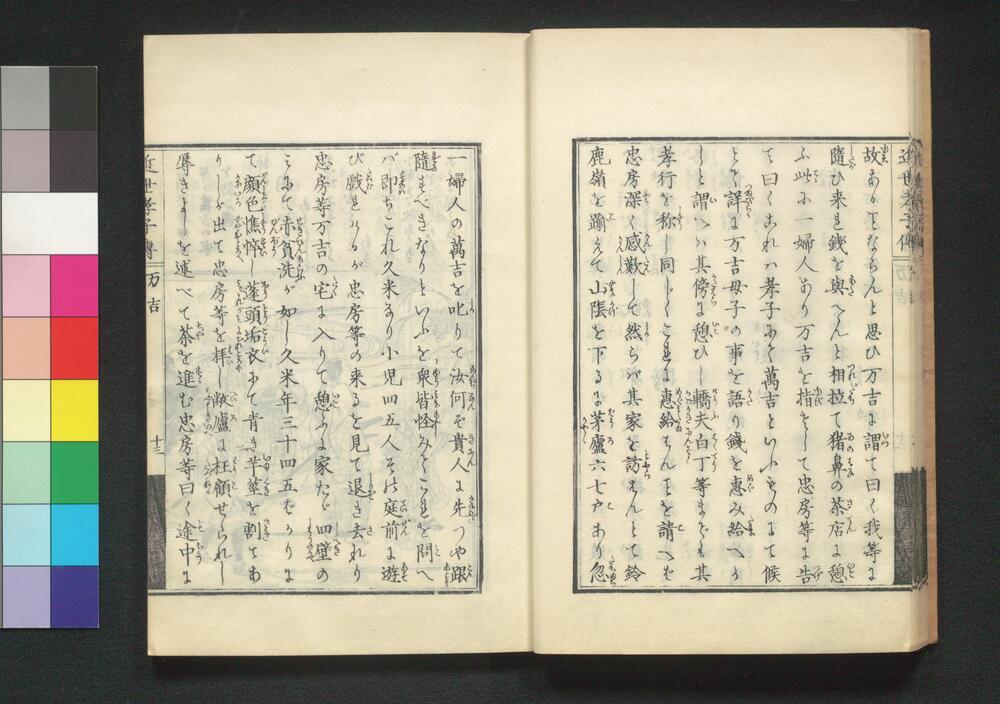 故あることならんと思ひ万吉に謂て曰く我等に
随ひ来れ銭を與へんと相拉て猪鼻の茶店に憩
ふ此に一婦人あり万吉を指さして忠房等に告
て曰くこれハ孝子にて萬吉といふものにて候
とて詳に万吉母子の事を語り銭を恵み給へか
しと謂へハ其傍に憩ひし轎夫白丁等までも其
孝行を称し同じくこれに恵給はんことを請へば
忠房深く感歎して然らバ其家を訪はんとて鈴
鹿嶺を踰えて山陰を下るに茅廬六七戸あり忽
一婦人の萬吉を叱りて汝何ぞ貴人に先つや跟
随すべきなりといふを衆皆怪みてこれを問へ
バ即ちこれ久米なり小児四五人その庭前に遊
び戯れけるが忠房等の来るを見て退き去れり
忠房等万吉の宅に入りて憩ふに家たゞ四壁の
みにて赤貧洗が如し久米年三十四五ばかりに
て顔色憔悴し蓬頭垢衣にて青き芋茎を割てあ
りしが出て忠房等を拝し敝廬に枉顧せられし
辱きよしを述べて茶を進む忠房等曰く途中に
近世孝子傳
万吉
十三